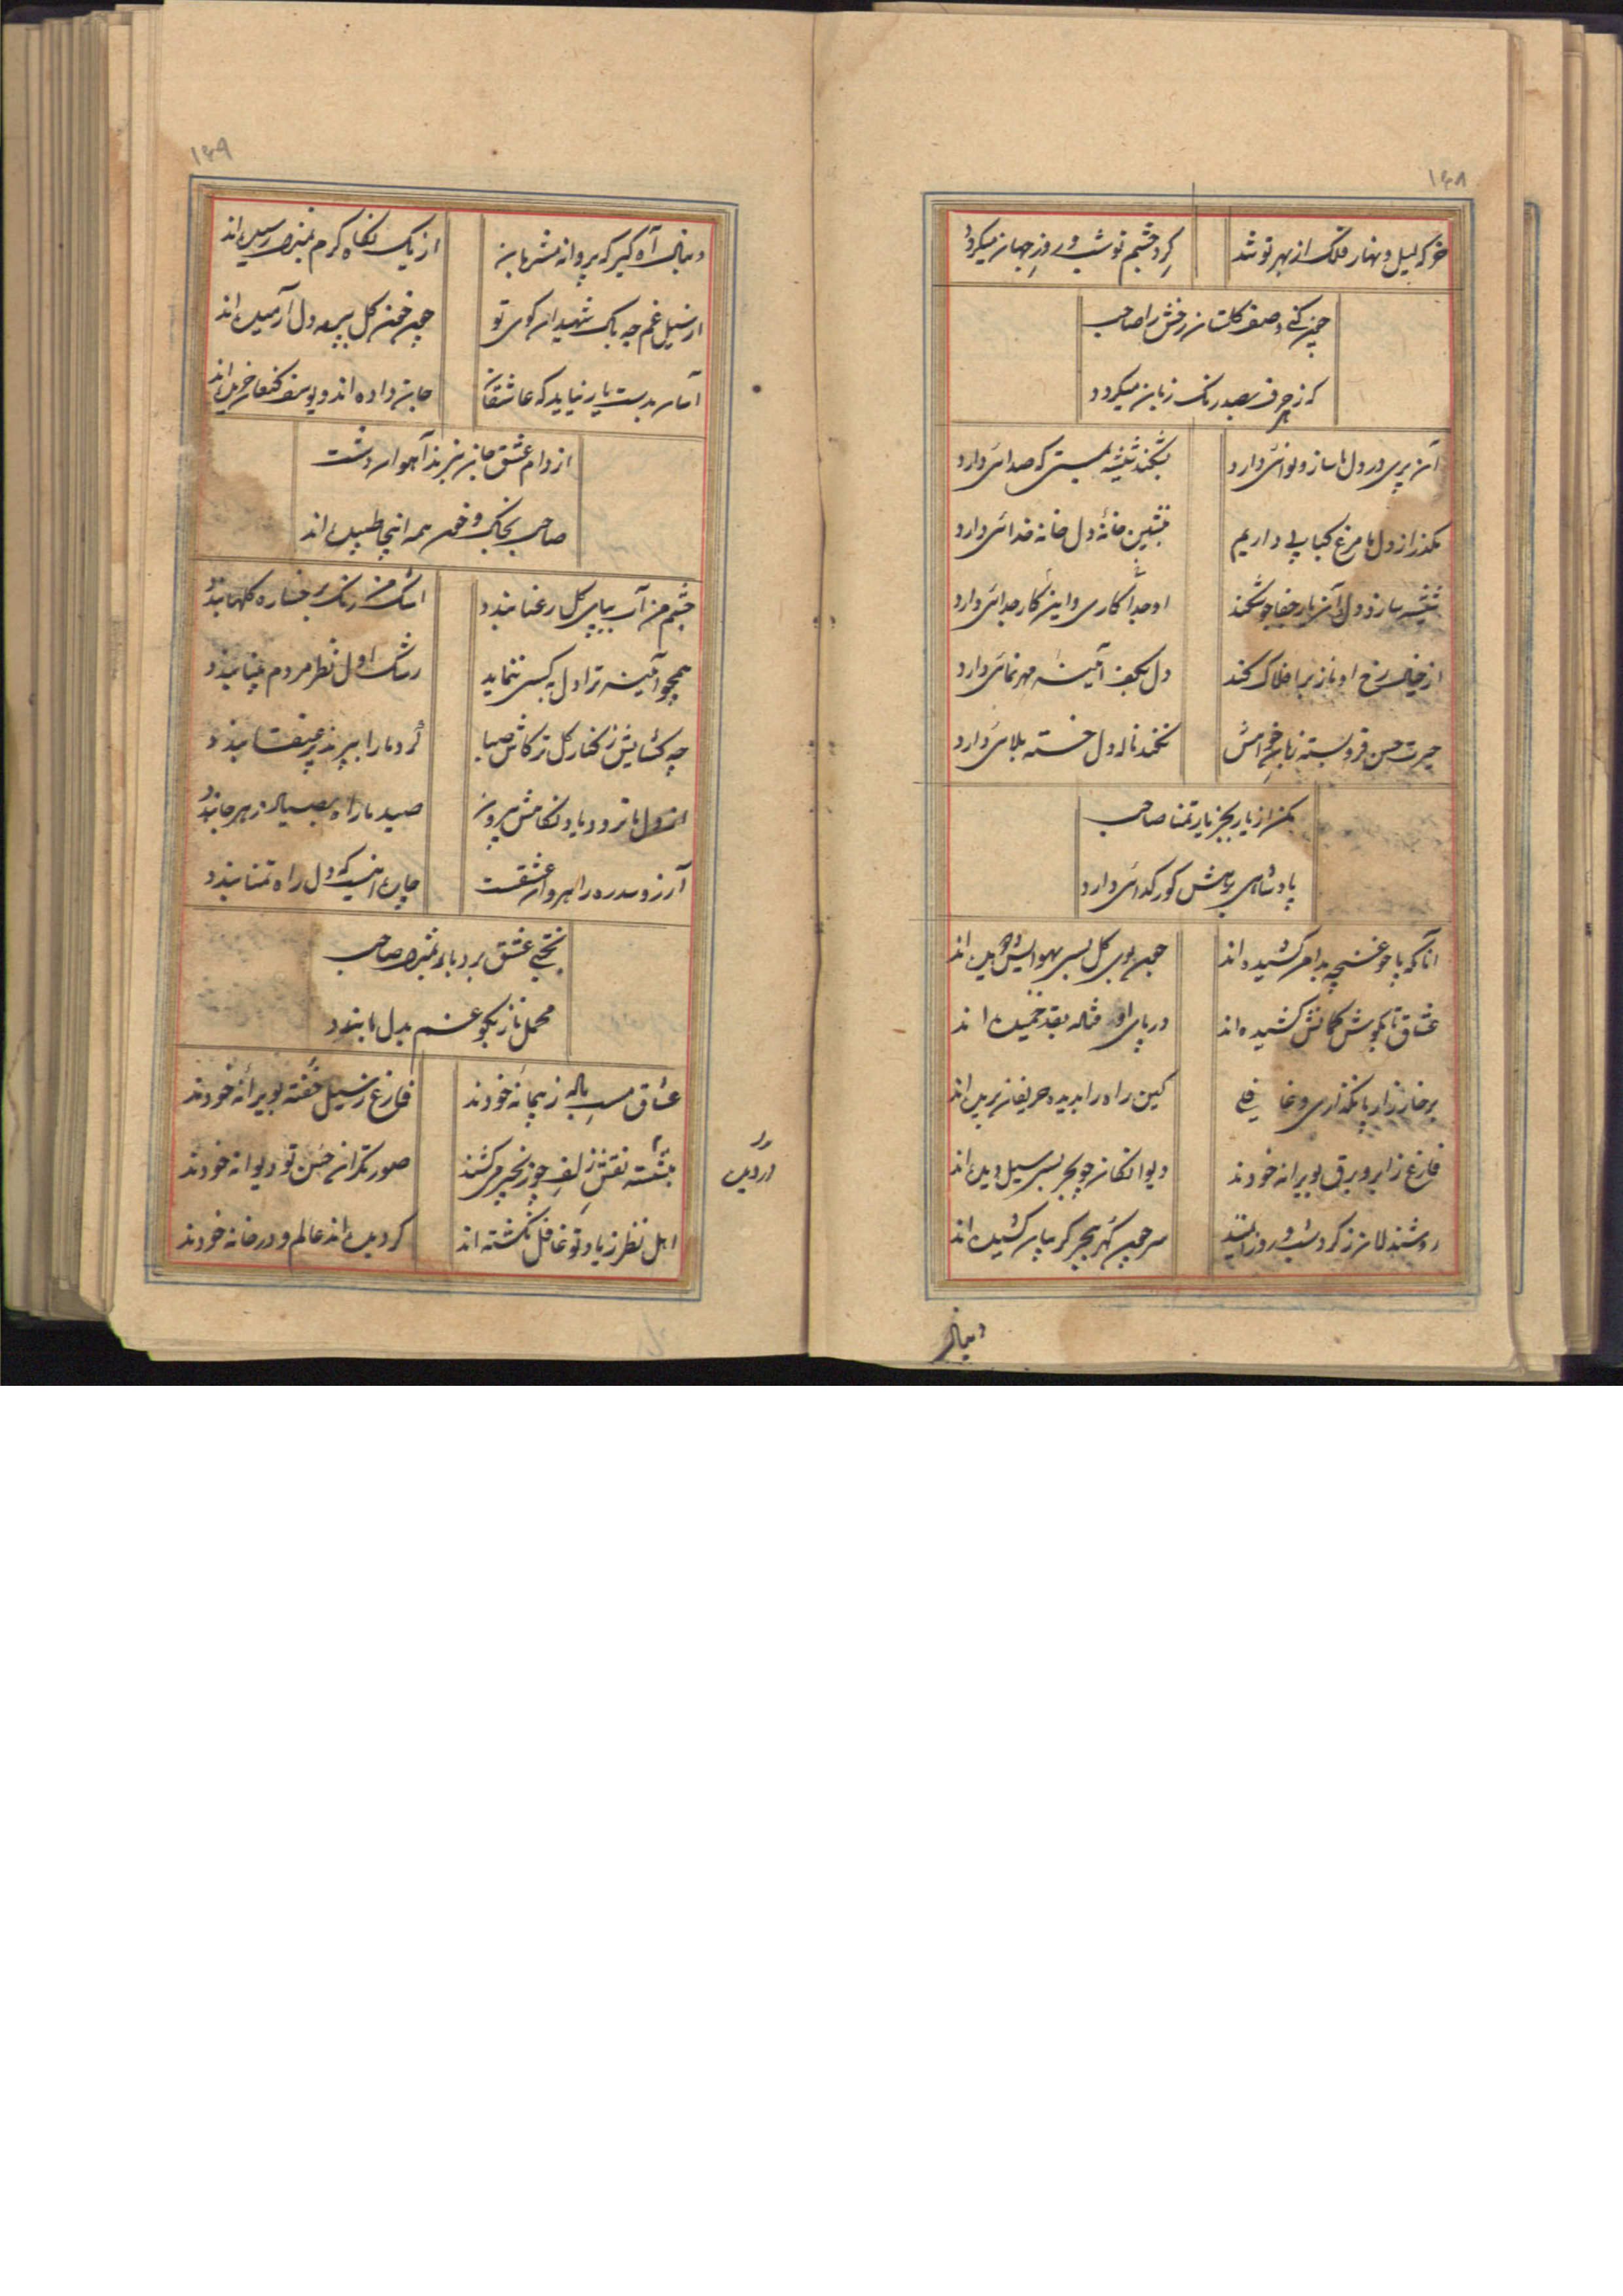 ۱۴۸
خرکه لیل و نهار فلک از بهر تو شد
کرد چشم تو شب و روز جهان میکردد
چون کنی وصف کلستان رخش را صاحب
که ز حرف بصد رنک زبان میکردد
آن پری در دل ما ساز و نوائی دارد
بشکند شیشه هستی که صدائی دارد
مکذر از دل ما مرغ کبابی داریم
بنشین خانه دل خانه خدائی دارد
شیشه سازد دل و آن یار جفاجو شکند
او جدا کاری و این کار جدائی دارد
از خیال رخ او ناز بر افلاک کند
دل بکف آئینه مهر نمائی دارد
حیرت حسن فرو بسته زبان
نکند ناله دل خسته بلائی دارد
مکن از یار بجز یار تمنا صاحب
پادشاهی بدرش کور کدائی دارد
آنانکه پا چو غنچه بدامن کشیده اند
چون بوی کل بسی بهوایش دویده اند
عشاق تا بکوش کمانش کشیده اند
در پای او بقد خمیده اند
بر خارزار پا نکذاری و غافلی
کین راه را بدیده حریفان بریده اند
فارغ ز ابر و برق بویرانه خودند
دیوانکان چو بحر بسی سیل دیده اند
روشندلان ز کردش شب و روز
سر چون کهر بجیب کریبان کشیده اند
دنبال
۱۴۹
دنبال آه کیر که پروانه مشربان
از یک نکاه کرم بمنزل رسیده اند
از سیل غم چه باک شهیدان کوی تو
چون خون کل بپرده دل آرمیده اند
آسان بدست یار نیاید که عاشقان
جان داده اند و یوسف کنعان خریده اند
از دام عشق جان نبرند آهوان دشت
صاحب بخاک و خون همه اینجا طپیده اند
چشم من آب بپای کل رعنا بندد
اشک من رنک بر رخساره کلها بندد
همچو آئینه ترا دل به کسی ننماید
رشک اول نظر مردم بینا بندد
چه کشایش ز کنار کل ترکاش صبا
کرد ما را بپر عنقا بندد
از دل ما نرود یاد نکاهش بیرون
صید ما را ره صیاد ز هر جا بندد
آرزو سد ره راهروان عشقست
چاره اینست که دل راه تمنا بندد
بختی عشق برد بار بمنزل صاحب
محمل ناز بکو غم بدل ما بندد
عشاق مست باله ز پیمانه خودند
فارغ ز سیل خفته بویرانه خودند
بنشسته نقش زلف چو زنجیر میکشند
صورتکران حسن تو دیوانه خودند
اهل نظر ز یاد تو غافل نکشته اند
کردیده اند عالم و در خانه خودند